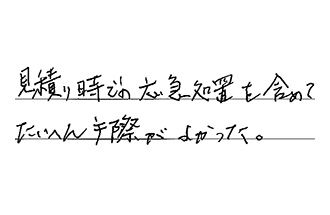 見積り時での応急処置を含めて
たいへん手際がよかった。